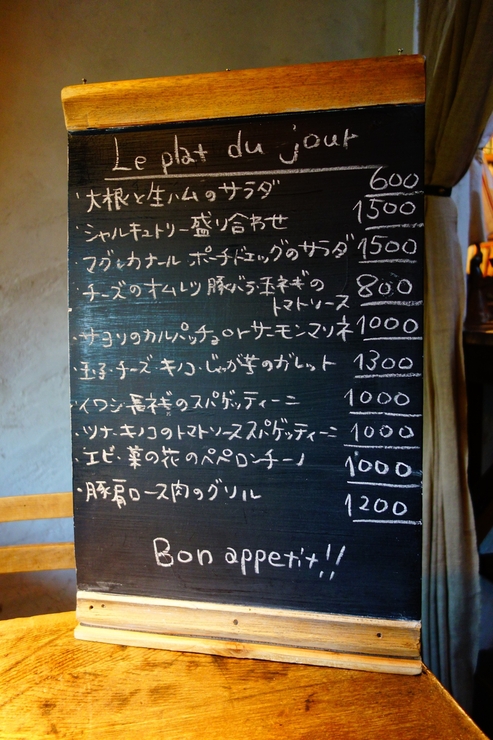 Le plat du jour
・大根と生ハムのサラダ 600
シャルキュトリー盛り合わせ 1500
・マグレカナール ポーチドエッグのサラダ 1500
・チーズのオムレツ 豚バラ玉ネギの 800
トマトソース
・サヨリのカルパッチョorサーモンマリネ 1000
・玉子・チーズ・キノコ・じゃが芋のガレット 1300
・イワシ長ネギのスパゲッティーニ 1000
・ツナ・キノコのトマトソーススパゲッティーニ 1000
・エビ・菜の花のペペロンチーノ 1000
・豚肩ロース肉のグリル 1200
Bon appetit!!